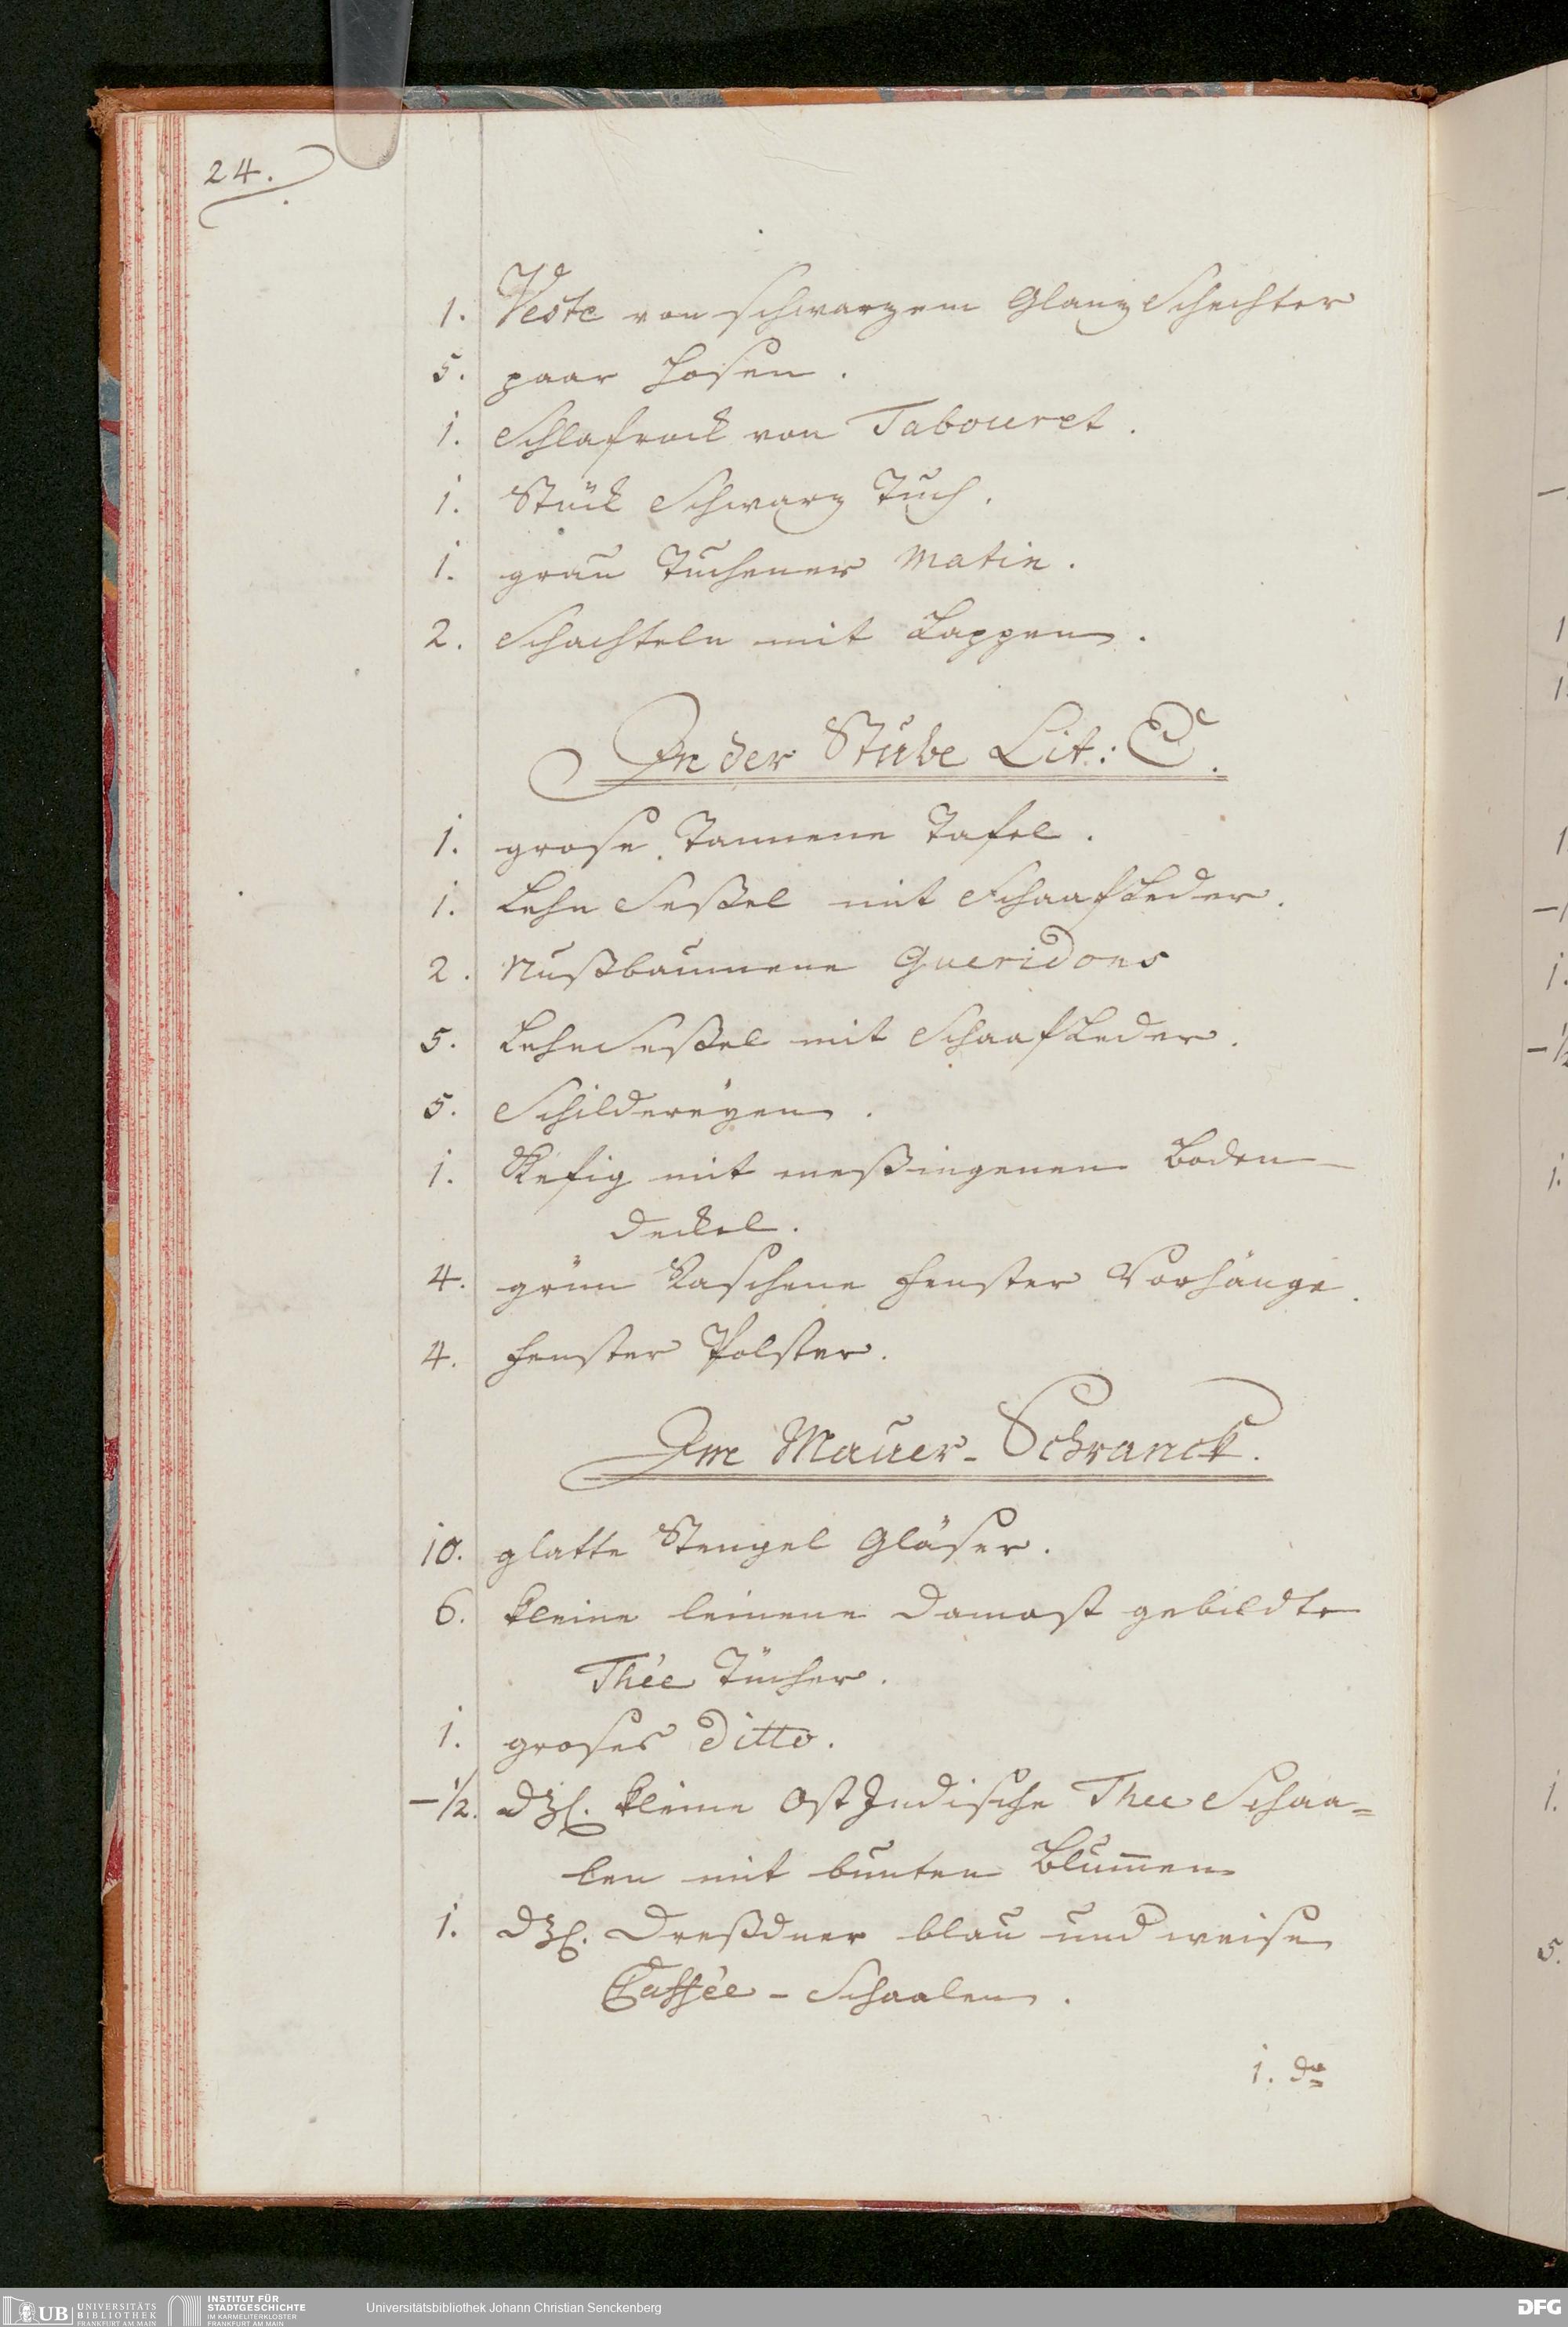 24.
1. Veste von schwarzem Glanz Schechter
5. paar Hosen.
1. Schlafrock von Tabouret.
1. Stück Schwarz Tuch.
1. grau Tuchener Matin.
2. Schachteln mit Lappen.
In der Stube Lit: C.
1. grose Tannene Tafel.
1. Lehn Seßel mit SchaafLeder.
2. Nußbaumene Gueridons
5. LehnSeßel mit SchaafLeder.
5. Schildereÿen.
1. Kefig mit meßingenem Boden
Deckel.
4. grün Raschene Fenster Vorhänge.
4. Fenster Polster.
Im Mauer-Schranck.
10. glatte Stengel Gläser.
6. kleine leinene Damast gebildte
Thée Tücher.
1. groses Ditto.
-1/2. dzl. kleine OstIndische Thee Schaa=
len mit bunten Blum̄en
1. dzl. Dreßdner blau und weise
Caffée-Schaalen.
1. do
UB UNIVERSITÄTS
BIBLIOTHEK
FRANKFURT AM MAIN
INSTITUT FÜR
STADTGESCHICHTE
IM KARMELITERKLOSTER
FRANKFURT AM MAIN
Universitätsbibliothek Johann Christian Senckenberg
DFG